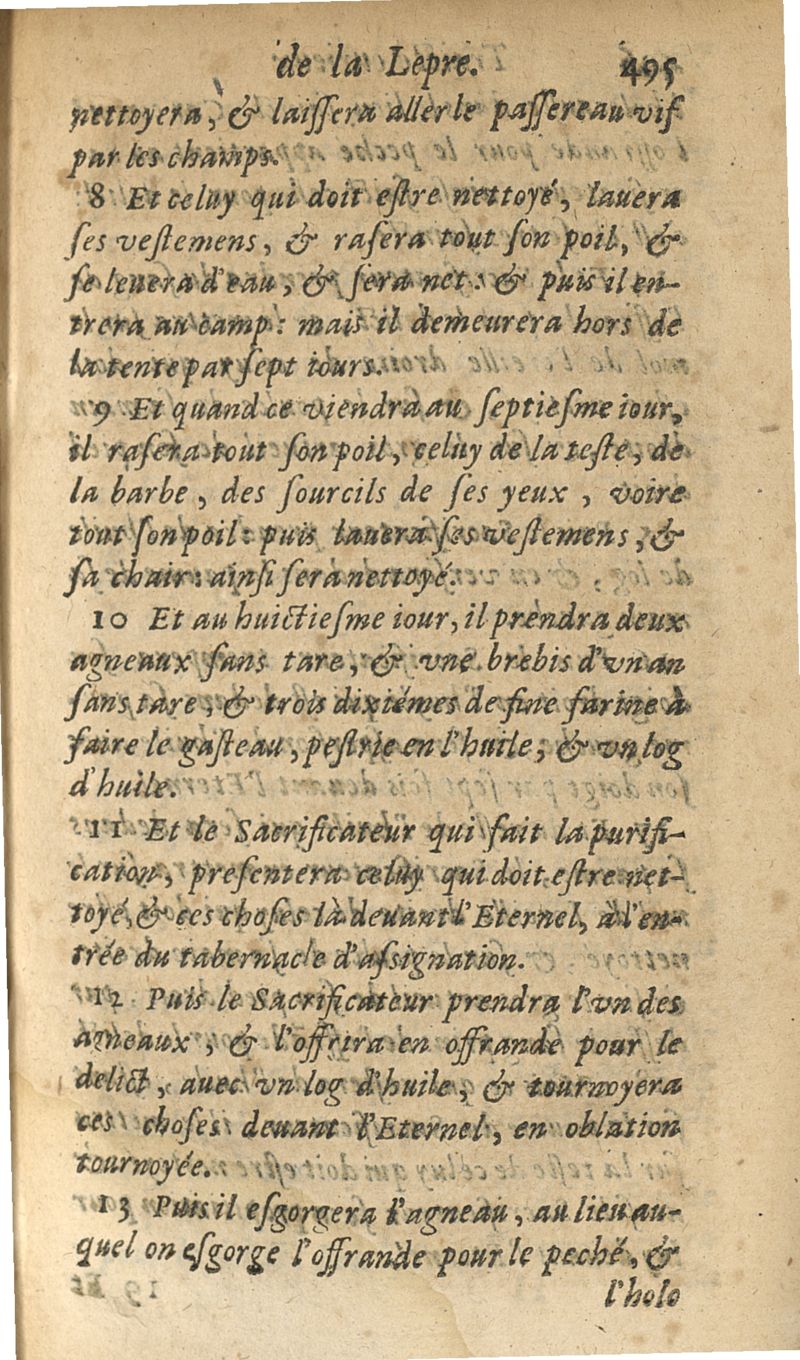 de la Lepre. 495
nettoyera, & laiſſera aller le paſſereau vif
par les champs.
8 Et celuy qui doit eſtre nettoyé, lauera
ſes veſtemens, & raſera tout ſon poil, &
ſe leuera d'eau, & ſera net: & puis il en-
trera au camp: mais il demeurera hors de
la tente par ſept iours.
9 Et quand ce viendra au ſeptieſme iour,
il raſera tout ſon poil, celuy de la teſte, de
la barbe, des ſourcils de ſes yeux, voire
tout ſon poil: puis lauera ſes veſtemens, &
ſa chair: ainſi ſera nettoyé.
10 Et au huictieſme iour, il prendra deux
agneaux ſans tare, & vne brebis d'vn an
ſans tare, & trois dixiémes de fine farine à
faire le gaſteau, peſtrie en l'huile, & vn log
d'huile.
11 Et le Sacrificateur qui fait la purifi-
cation, preſentera celuy qui doit eſtre net-
toyé, & ces choſes là deuant l'Eternel, à l'en-
trée du tabernacle d'aſsignation.
12 Puis le Sacrificateur prendra l'vn des
agneaux, & l'offrira en offrande pour le
delict, auec vn log d'huile, & tournoyera
ces choſes deuant l'Eternel, en oblation
tournoyée.
13 Puis il eſgorgera l'agneau, au lieu au-
quel on eſgorge l'offrande pour le peché, &
l'holo